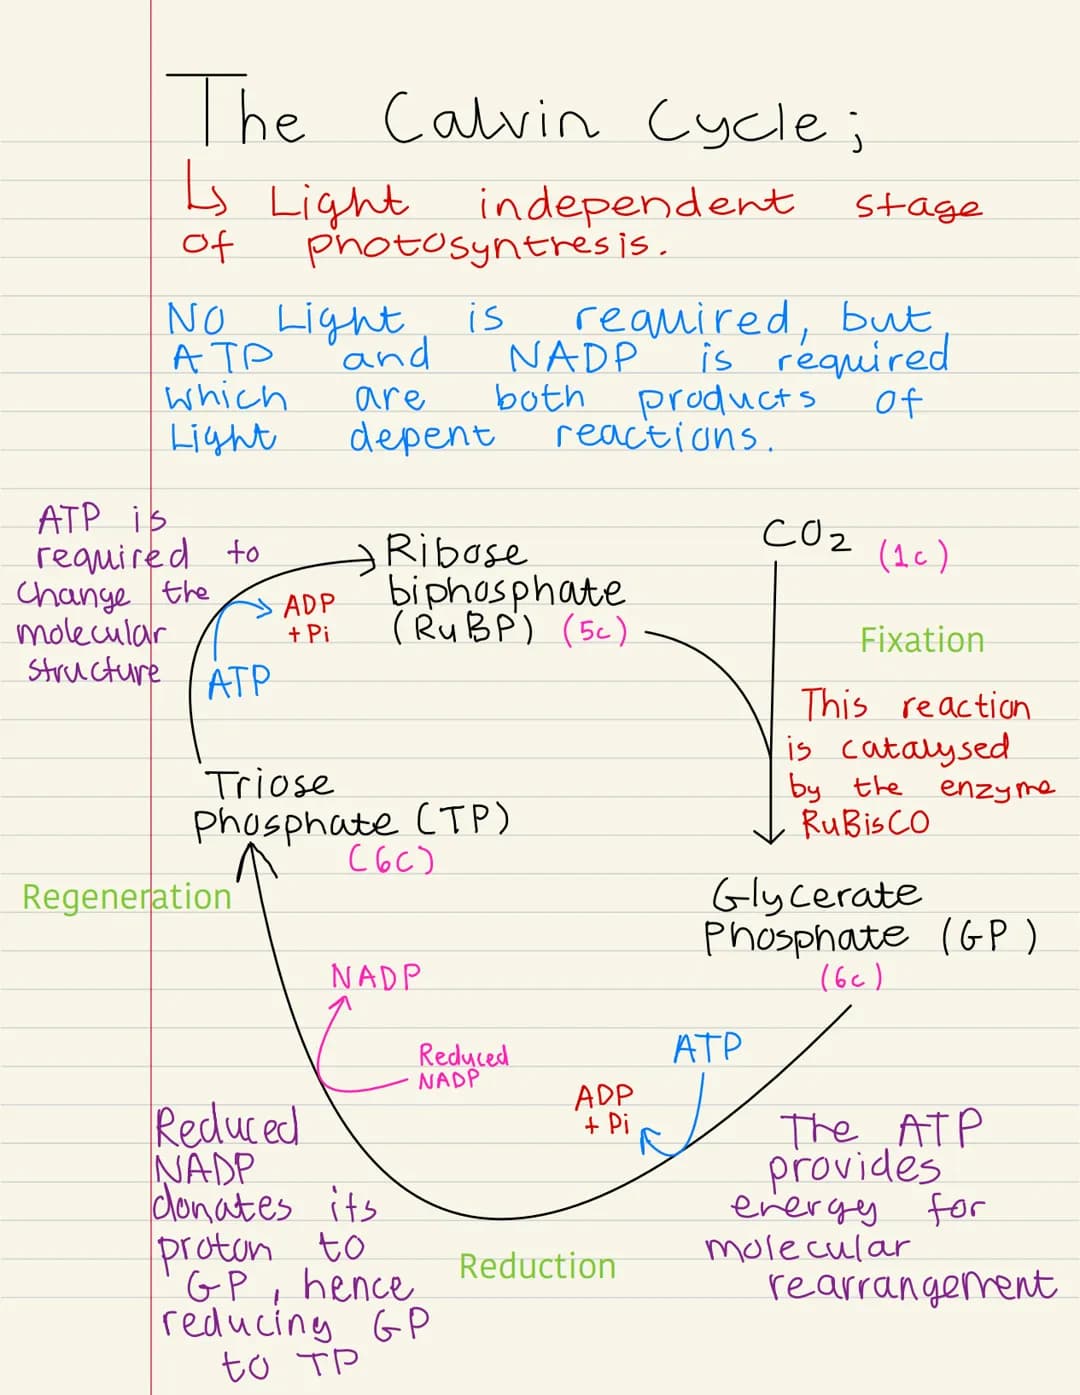 The Calvin Cycle;
↳ Light independent stage
of photosyntresis.
No Light is required, but
ATP and NADP is required
which are both products of
Light depent reactions.
ATP is
required to
change the
molecular
structure
Ribose
biphosphate
(RuBP) (5c)
ADP
+ Pi
ATP
CO2 (1c)
Fixation
This reaction
is catalysed
by the enzyme
RuBisCO
Triose
Phosphate (TP)
(6c)
Regeneration
Glycerate
Phosphate (GP)
(6c)
NADP
Reduced
NADP
ATP
ADP
+ Pi
Reduced
NADP
donates its
proton to
GP, hence
reducing GP
to TP
Reduction
The ATP
provides
energy for
molecular
rearrangement